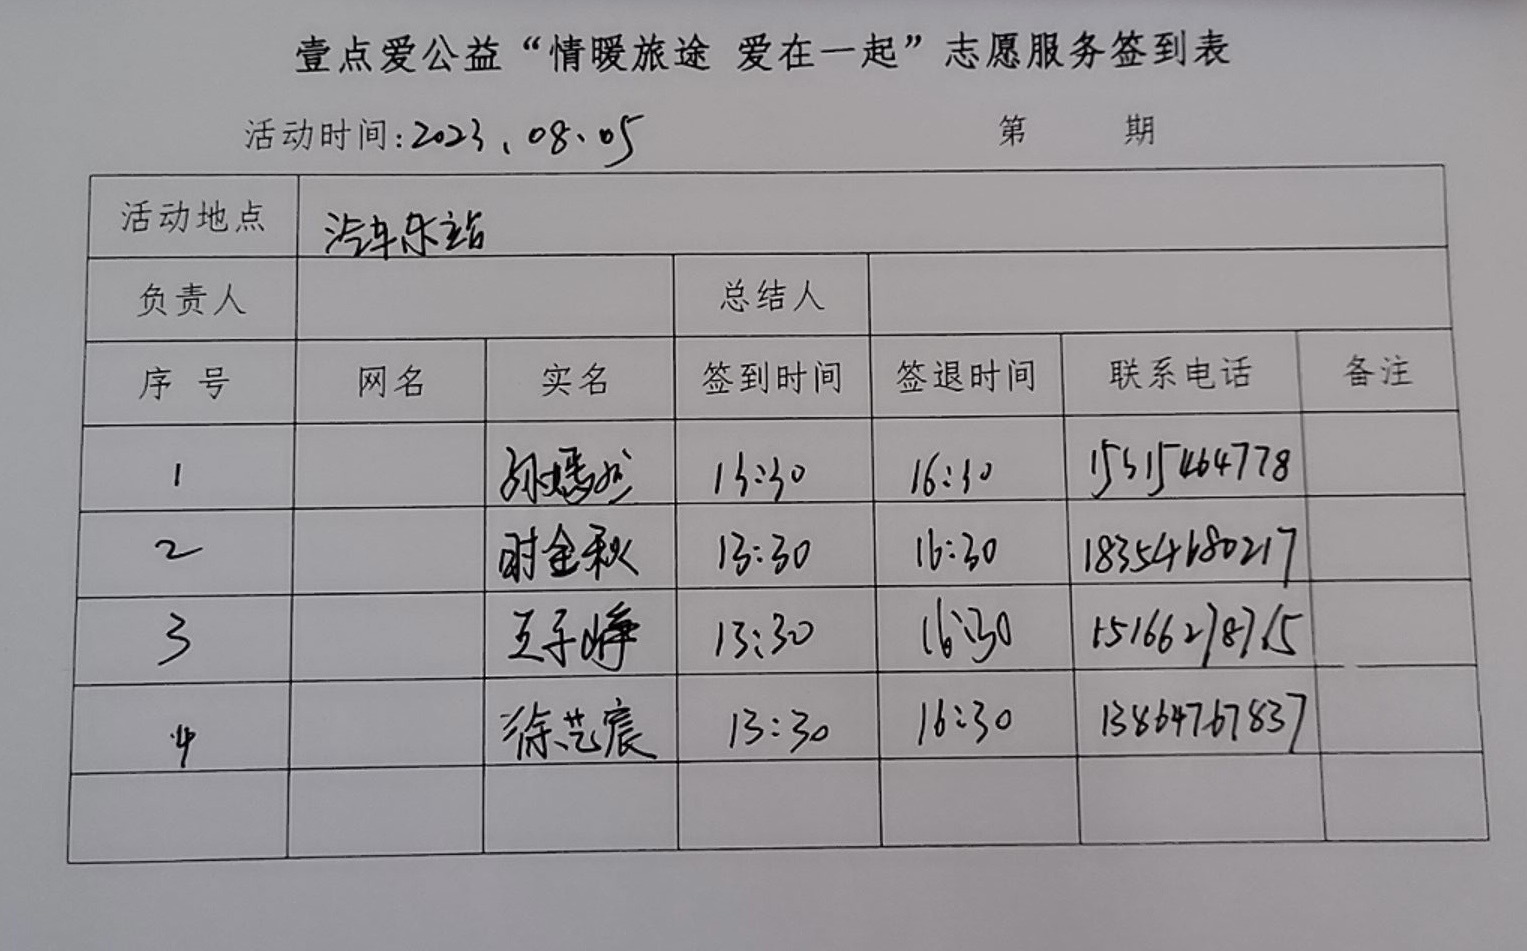 壹点爱公益“情暖旅途 爱在一起”志愿服务签到表
活动时间:2023.08.05 第 期
活动地点 汽车东站
负责人 总结人
序号 网名 实名 签到时间 签退时间 联系电话 备注
1 孙嫣然 13:30 16:30 15315464778
2 时金秋 13:30 16:30 18354680217
3 王子峥 13:30 16:30
4 徐艺宸 13:30 16:30 13864767837